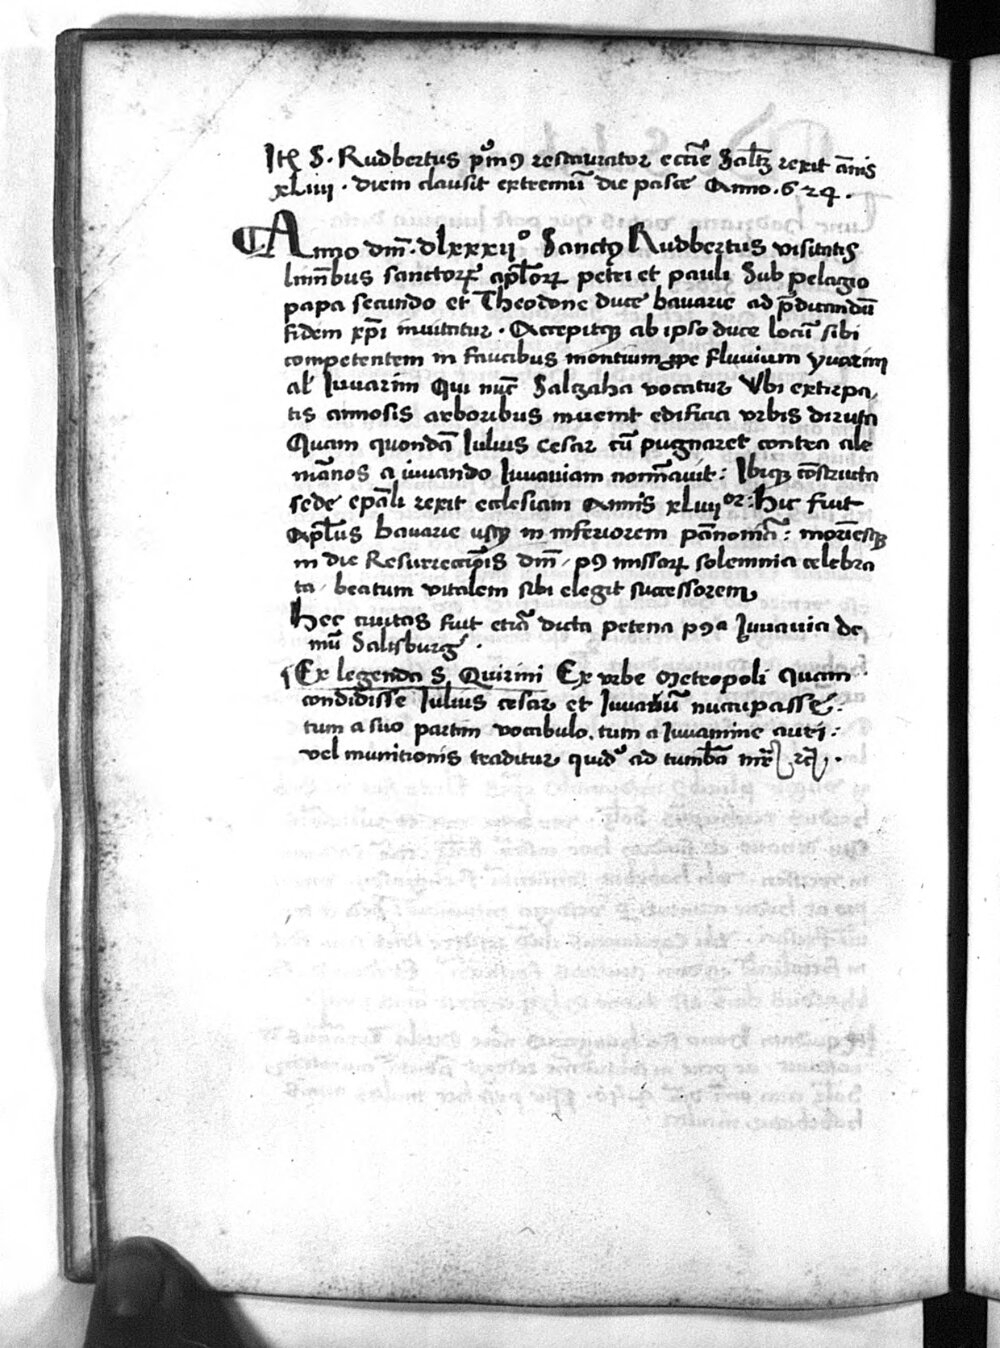 Itē S. Rudbertus pͥm9 restaurator ecc̄ie Saltzꝫ rexit ān̄is
xLiiii. diem clausit extremū die pasce Anno. 624.
Anno dm̄. dlxxxii° Sanctꝰ Rudbertus visitatis
limībus sanctorꝝ ap̄lorꝝ petri et pauli Sub pelagio
papa secundo et Theodone duce bavarie ad p̄dicandū
fidem xp̄i invitatur. Accepitqꝫ ab ipso duce locū sibi
competentem in faucibus montium ꝓpe fluvium yvarim
al' Iuvarim Qui nūc Salzaha vocatur Vbi extirpa,
tis annosis arboribus invenit edificia vrbis diruta
Quam quondā Iulius cesar cū pugnaret contra ale
mānos a iuvando Iuvaviam nom̄avit: Ibiqꝫ cōstructa
sede ep̄ali rexit ecclesiam Annis xLiiii or: Hic fuit
Ap̄lus bavarie usqꝫ in inferiorem pānoniā: moriēsqꝫ
in die Resurreccōis dm̄, p9 missarꝝ solemnia celebra
ta, beatum vitalem sibi elegit successorem,
Hec civitas fuit etiā dicta petena p9ᵃ Iuvavia de
mū Salisburg.
Ex legenda S. Quirini Ex vrbe Metropoli Quam
condidisse Iulius cesar et Iuvaviū nūcupasse:
tum a suo partim vocabulo. tum a Iuvamine auri:
vel munitionis traditur quidē ad tumbā mr̄is rc̄.